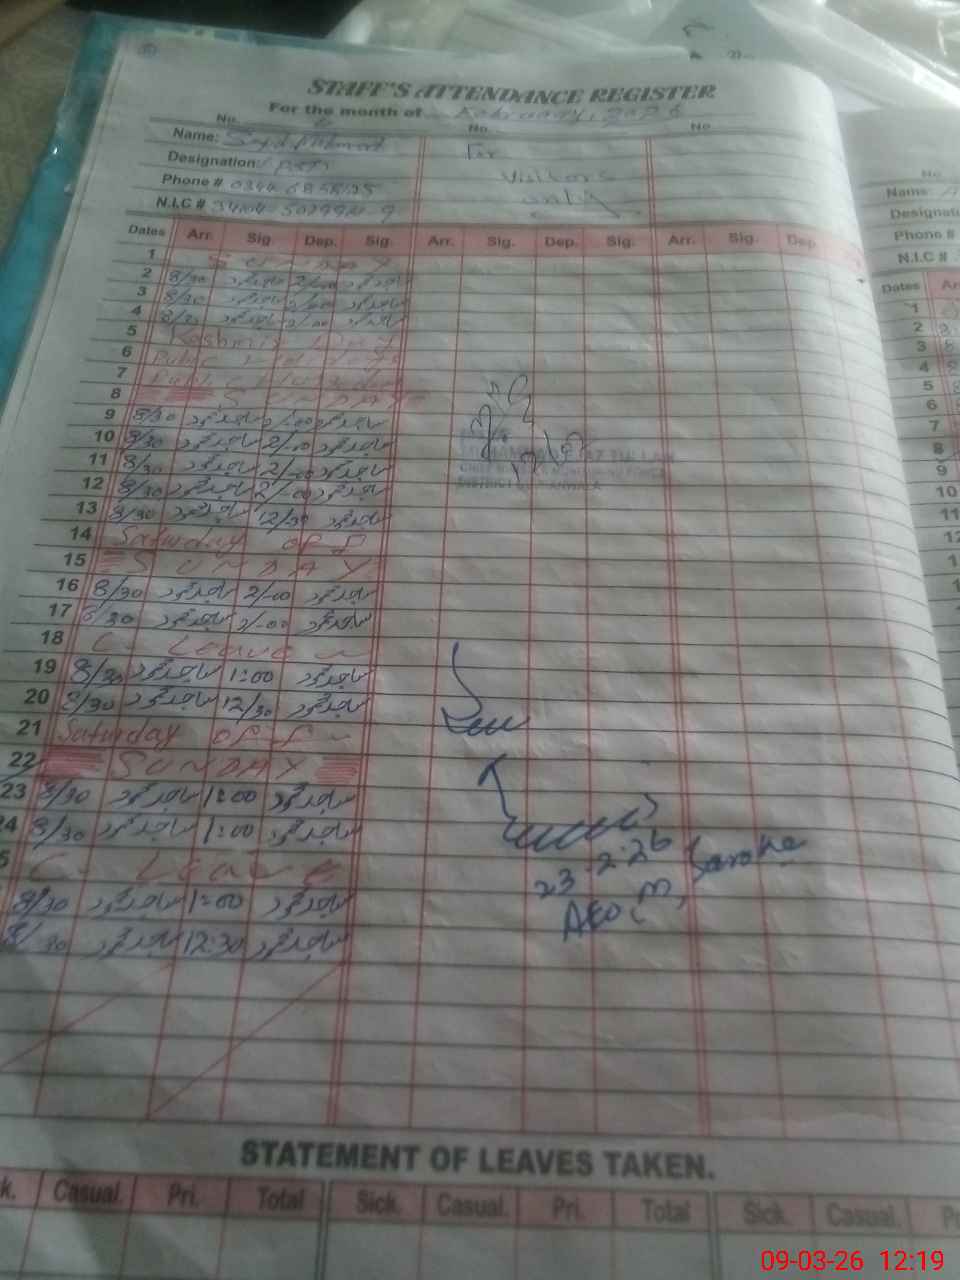 STAFF'S ATTENDANCE REGISTER
For the month of February, 2026
No. No. No
Name: For
Designation: Visitors
Phone # only
N.I.C #
Dates Arr. Sig. Dep. Sig. Arr. Sig. Dep. Sig. Arr. Sig. Dep.
1 SUNDAY
2 8/30 ساجد محمود 2/-00 ساجد محمود
3 8/30 ساجد محمود 2/-00 ساجد محمود
4 8/30 ساجد محمود 2/-00 ساجد محمود
5 Kashmir Day
6 Public Holiday
7 Public
8 SUNDAY
9 8/30 ساجد محمود 2/-00 ساجد محمود
10 8/30 ساجد محمود 2/-00 ساجد محمود
11 8/30 ساجد محمود 2/-00 ساجد محمود
12 8/30 ساجد محمود 2/-00 ساجد محمود
13 8/30 ساجد محمود 12/30 ساجد محمود
14 Saturday OFF
15 SUNDAY
16 8/30 ساجد محمود 2/-00 ساجد محمود
17 8/30 ساجد محمود 2/-00 ساجد محمود
18 C. Leave
19 8/30 ساجد محمود 1:00 ساجد محمود
20 8/30 ساجد محمود 12/30 ساجد محمود
21 Saturday OFF
22 SUNDAY
23 8/30 ساجد محمود 1:00 ساجد محمود
24 8/30 ساجد محمود 1:00 ساجد محمود
5 C. Leave
8/30 ساجد محمود 1:00 ساجد محمود
8/30 ساجد محمود 12:30 ساجد محمود
23-2-26
AEO (M) Saroke
STATEMENT OF LEAVES TAKEN.
k. Casual. Pri. Total Sick. Casual. Pri. Total Sick. Casual. Pr
No
Name:
Designati
Phone #
N.I.C #
Dates Ar
1
2
3
4
5
6
7
8
9
10
11
12
09-03-26 12:19